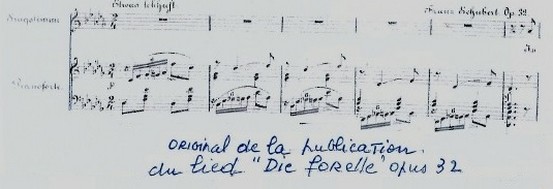 Etwas lebhaft
Franz Schubert Op. 32
Singstimme
Pianoforte
original de la publication.
du lied "Die forelle" opus 32